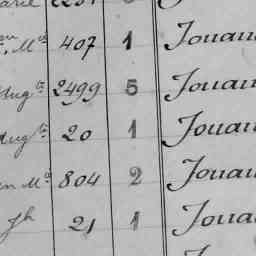 M 407 1 Jouau
Aug 2499 5 Jouau
Aug 20 1 Jouau
M 804 2 Jouau
Jh 21 1 Jouau